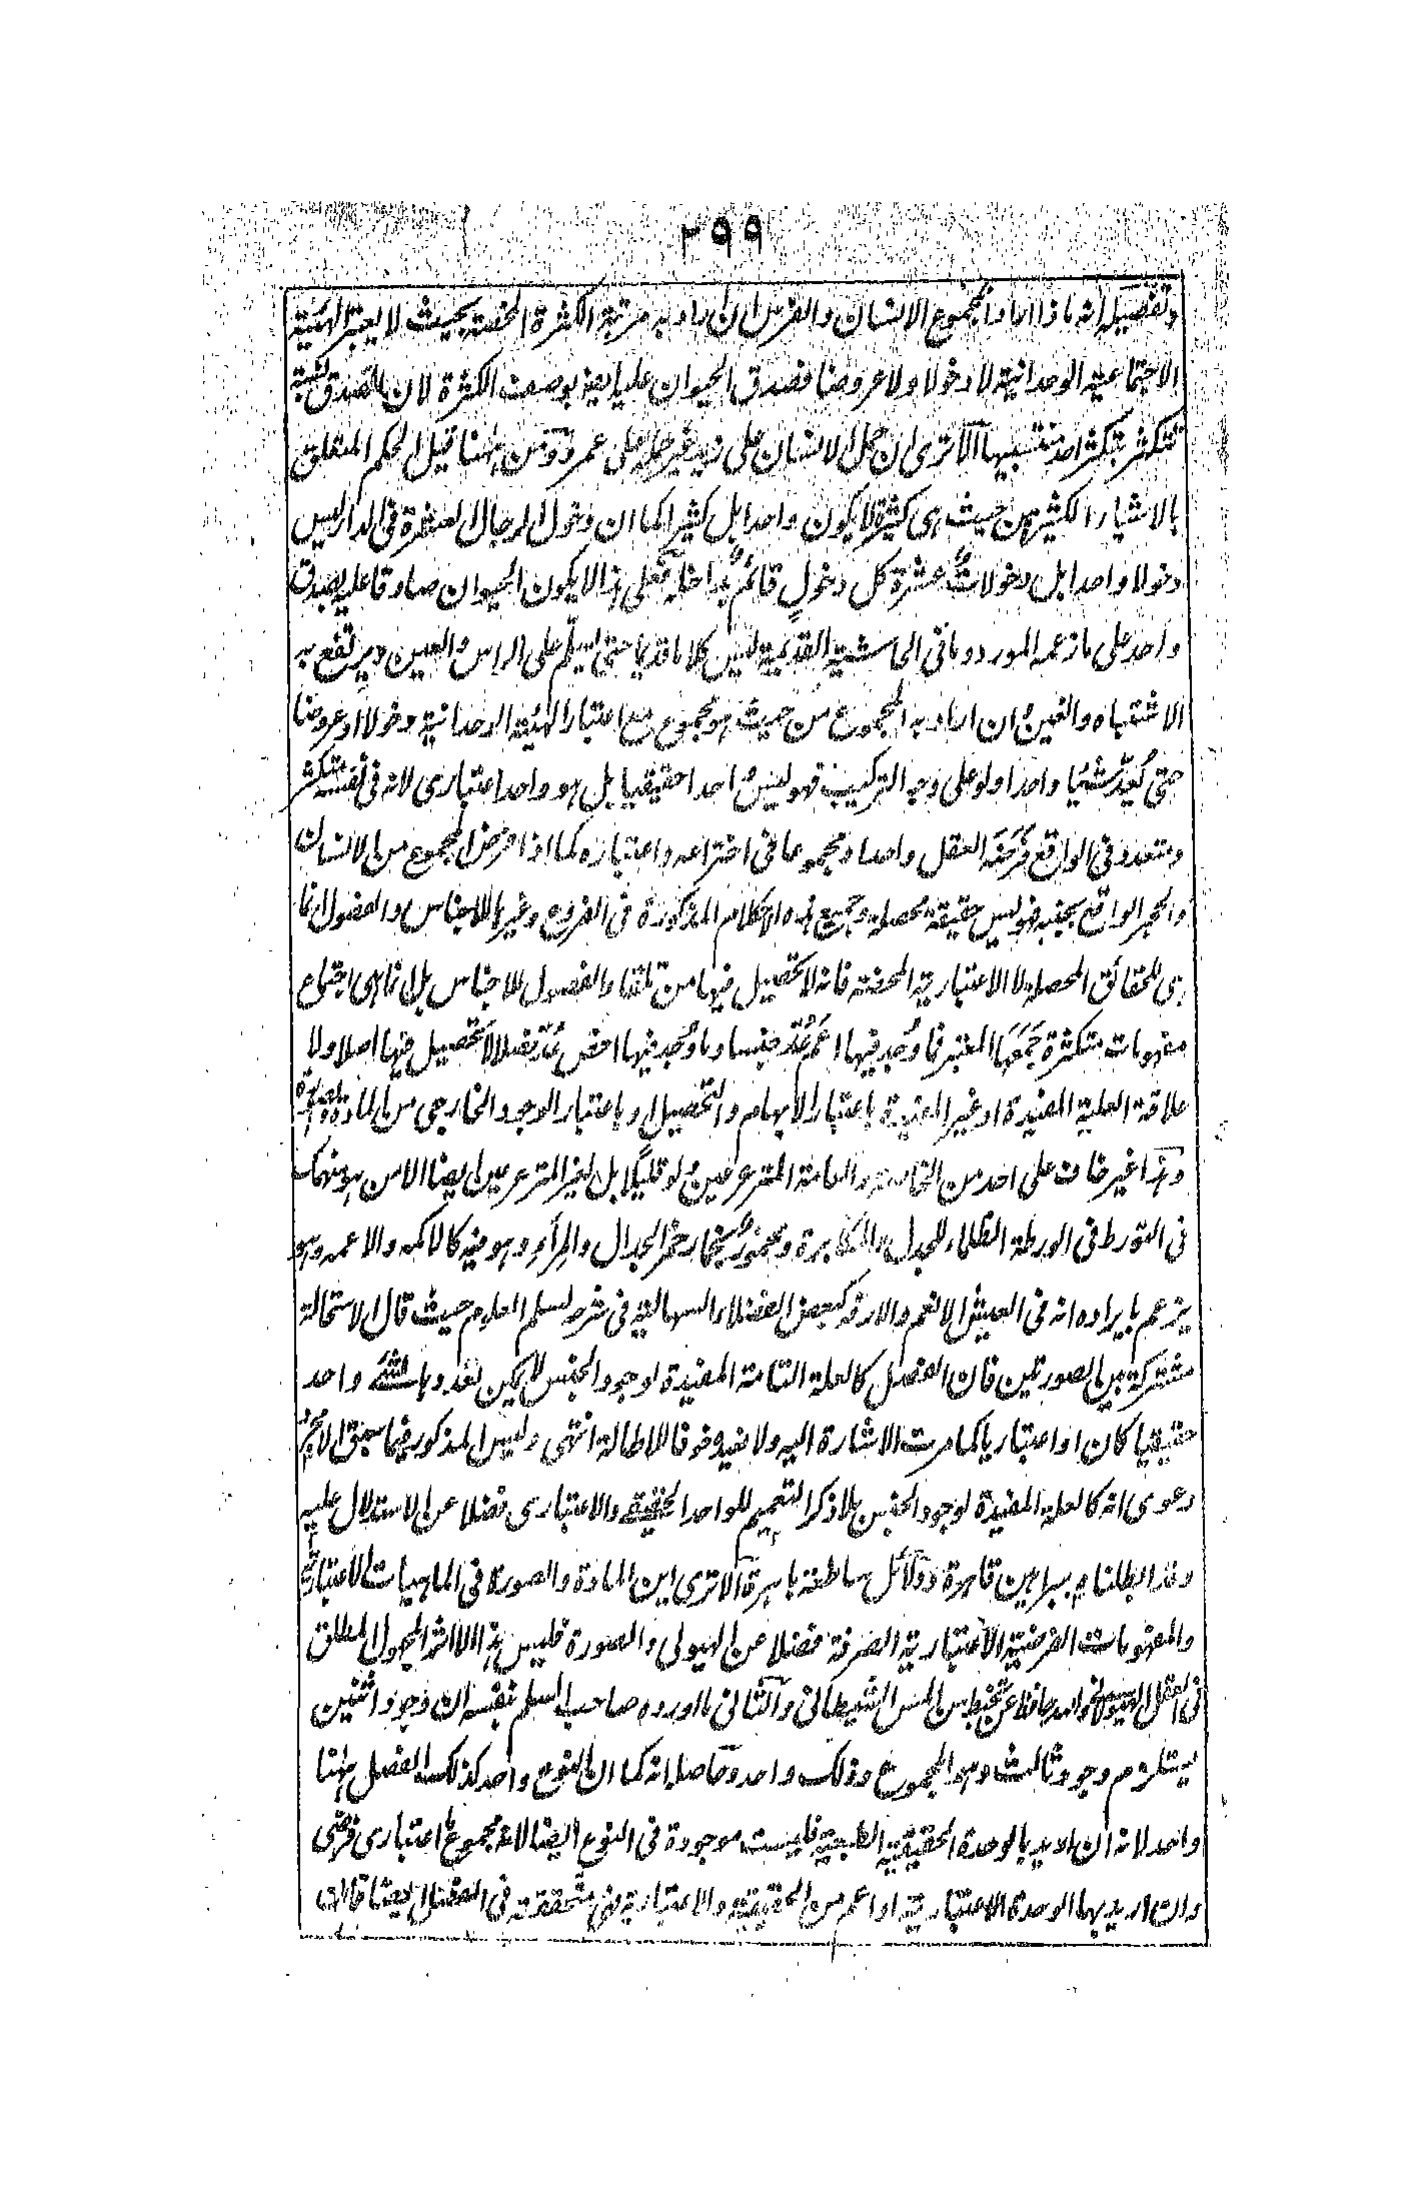 ٢٩٩
وتفصيله انه ماذا اراد بمجموع الانسان والفرس ان اراد به مرتبة الكثرة المحضة بحيث لا يعتبر الهيئة
الاجتماعية الوحدانية لا دخولا ولا عروضا فصدق الحيوان عليه بوصف الكثرة لان الصدق نسبة
تتكثر بتكثر احد منتسبيها الا ترى ان حمل الانسان على زيد غير حمله على عمرو ومن ههنا قيل الحكم المتعلق
بالاشياء الكثيرة من حيث هى كثيرة لا يكون واحدا بل كثيرا كما ان دخول الرجال العشرة فى الدار ليس
دخولا واحدا بل دخولات عشرة كل دخول قائم بداخله فعلى هذا لا يكون الحيوان صادقا عليه بصدق
واحد على ما زعمه المورد وما فى الحاشية القديمة ليس كلاما قديما حتى يسلم على الراس والعين ويرتفع به
الاشتباه والغين وان اراد به المجموع من حيث هو مجموع مع اعتبار الهيئة الوحدانية دخولا او عروضا
حتى يعد شيئا واحدا ولو على وجه التركيب فهو ليس واحدا حقيقيا بل هو واحد اعتبارى لانه فى نفسه متكثر
ومتعدد فى الواقع فرضه العقل واحدا ومجموعا فى اختراعه واعتباره كما اذا فرض المجموع من الانسان
والحجر الواقع بجنبه فهو ليس حقيقة محصلة وجميع هذه الاحكام المذكورة فى الفروع وغيرها للاجناس والفصول انما
هى للحقائق المحصلة لا الاعتبارية المحضة فانه لا تحصيل فيها من تلقاء الفصول للاجناس بل انما هى اجتماع
مفهومات متكثرة جمعها المعتبر فما وجد فيها اعم عد جنسا وما وجد فيها اخص عد فصلا لا تحصيل فيها اصلا ولا
علاقة العلية المفيدة او غير المفيدة باعتبار الابهام والتحصيل وباعتبار الوجود الخارجى من المادة والصورة
وهذا غير خاف على احد من الخاصة والعامة المترعرعين ولو قليلا بل لغير المترعرعين ايضا الا من هو منهمك
فى التورط فى الورطة الظلماء للجدل والمكابرة ومخمور بخمار خمر الجدال والمراء وهو فيه كالاكمه والاعمه وهو
يزعم بايراده انه فى العيش الانعم والارفه كبعض الفضلاء السهالية فى شرحه لسلم العلوم حيث قال الاستحالة
مشتركة بين الصورتين فان الفصل كالعلة التامة المفيدة لوجود الجنس لا يمكن تعددها لشئ واحد
حقيقيا كان او اعتباريا كما مرت الاشارة اليه ولا نعيده خوفا للاطالة انتهى وليس المذكور فيما سبق الا مجرد
دعوى انه كالعلة المفيدة لوجود الجنس بلا ذكر التعميم للواحد الحقيقى والاعتبارى فضلا عن الاستدلال عليه
وقد ابطلناه ببراهين قاهرة ودلائل ساطعة باهرة الا ترى اين المادة والصورة فى الماهيات الاعتبارية
والمفهومات الفرضية الاعتبارية الصرفة فضلا عن الهيولى والصورة فليس هذا الا اثر المجهول المطلق
فى العقل من المس الشيطانى والثانى ما اورده صاحب السلم نفسه ان وجود اثنين
يستلزم وجود ثالث وهو المجموع وذلك واحد وحاصله انه كما ان النوع واحد كذلك الفصل ههنا
واحد لانه ان اريد بالوحدة الحقيقية الطبعية فليست موجودة فى النوع ايضا لانه مجموع اعتبارى فرضى
وان اريد بها الوحدة الاعتبارية او اعم من الحقيقية والاعتبارية فهى متحققة فى الفصل ايضا